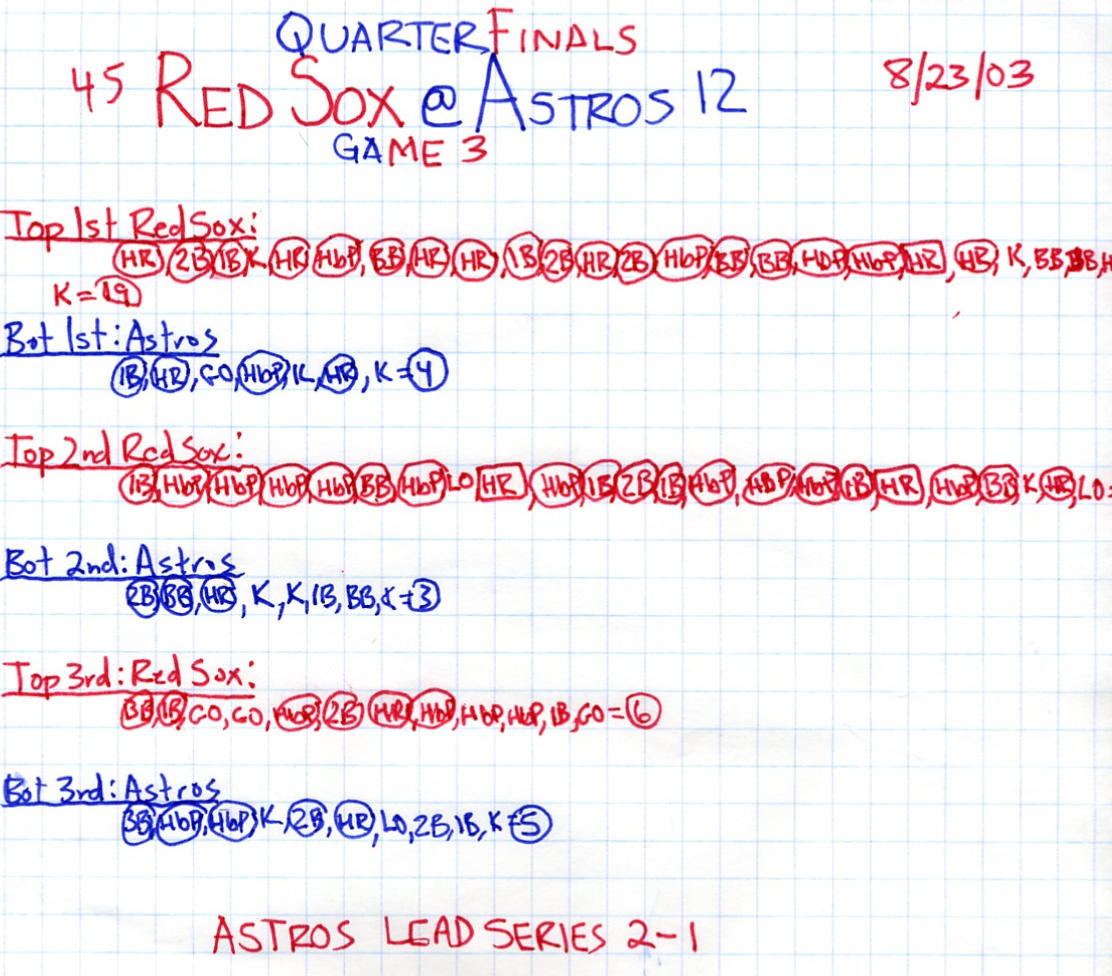 QUARTERFINALS
45 RED SOX @ ASTROS 12 8/23/03
GAME 3
Top 1st Red Sox:
HR, 2B, 1B, K, HR, HbP, BB, HR, HR, 1B, 2B, HR, 2B, HbP, BB, BB, HbP, HbP, HR, HR, K, BB, BB, H
K = 19
Bot 1st: Astros
1B, HR, GO, HbP, K, HR, K = 4
Top 2nd Red Sox:
1B, HbP, HbP, HbP, HbP, BB, HbP, LO, HR, HbP, 1B, 2B, 1B, HbP, HbP, HbP, 1B, HR, HbP, BB, K, HR, LO =
Bot 2nd: Astros
2B, BB, HR, K, K, 1B, BB, K = 3
Top 3rd: Red Sox:
BB, 1B, GO, GO, HbP, 2B, HR, HbP, HbP, HbP, 1B, GO = 6
Bot 3rd: Astros
BB, HbP, HbP, K, 2B, HR, LO, 2B, 1B, K = 5
ASTROS LEAD SERIES 2-1